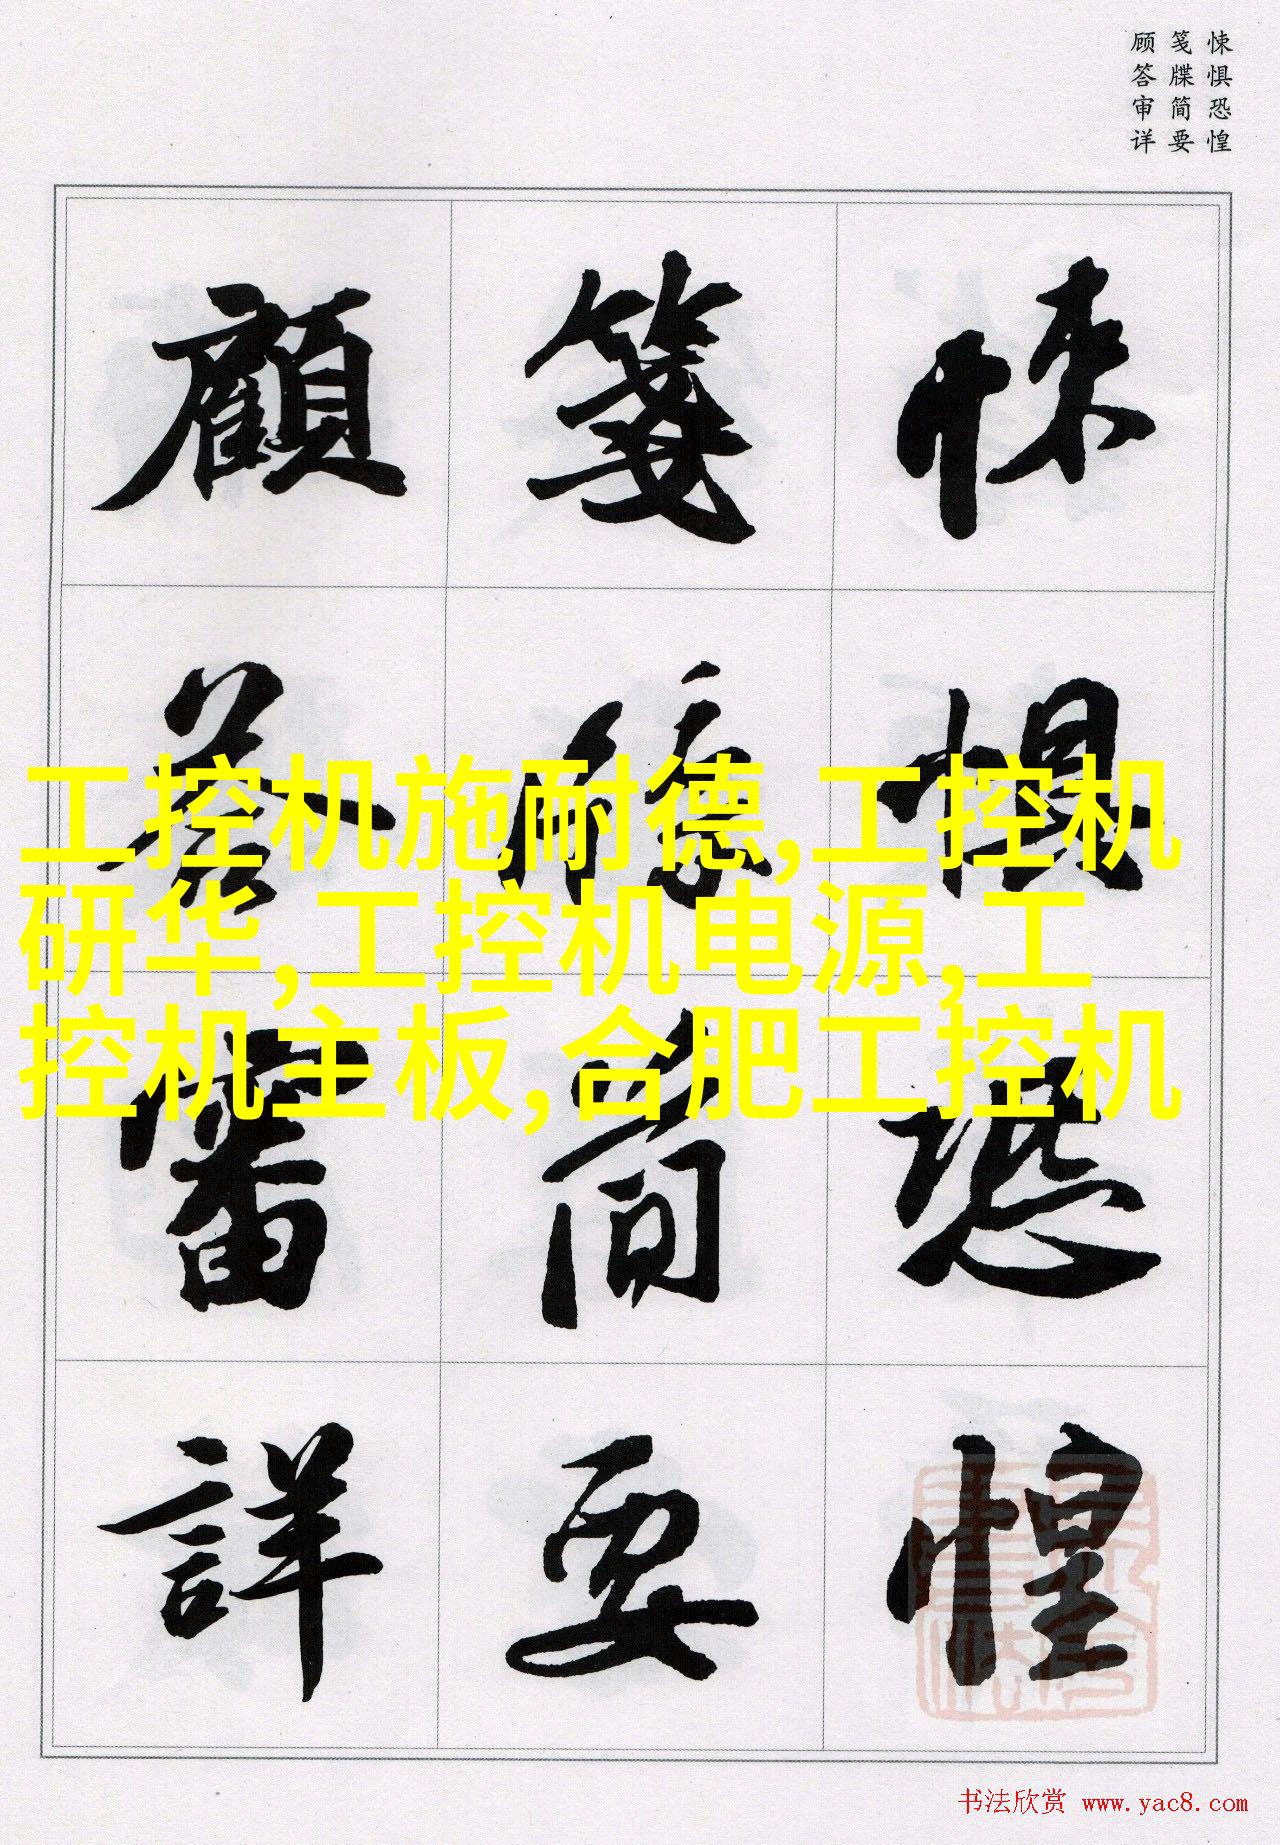 悚惧恐惶
笺牒简要
顾答审详
悚惧恐惶
箋牒簡要
顧答審詳
工控机施耐德,工控机
研华,工控机电源,工
控机主板,合肥工控机
书法欣赏 www.yac8.com